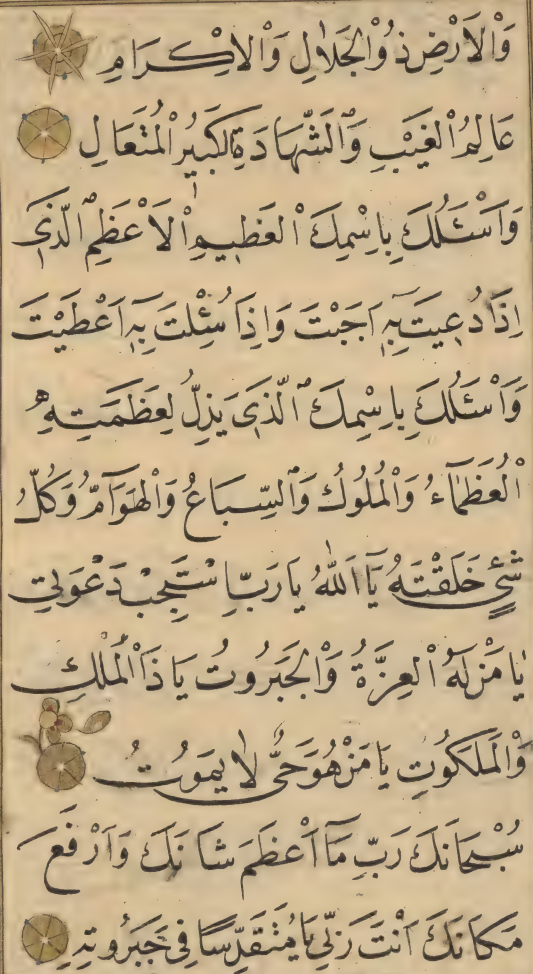 وَالْاَرْضِ ذُوالْجَلَالِ وَالْاِكْرَامِ
عَالِمُ الْغَيْبِ وَالشَّهَادَةِ الكَبِيرُ الْمُتَعَالِ
وَاَسْئَلُكَ بِاسْمِكَ الْعَظِيمِ الْاَعْظَمِ الَّذِي
اِذَا دُعِيتَ بِهِ اَجَبْتَ وَاِذَا سُئِلْتَ بِهِ اَعْطَيْتَ
وَاَسْئَلُكَ بِاسْمِكَ الَّذِي يَذِلُّ لِعَظَمَتِهِ
الْعُظَمَآءُ وَالْمُلُوكُ وَالسِّبَاعُ وَالْهَوَآمُّ وَكُلُّ
شَيْءٍ خَلَقْتَهُ يَآ اَللهُ يَا رَبِّ اسْتَجِبْ دَعْوَتِي
يَا مَنْ لَهُ الْعِزَّةُ وَالْجَبَرُوتُ يَا ذَا الْمُلْكِ
وَالْمَلَكُوتِ يَا مَنْ هُوَ حَيٌّ لَا يَمُوتُ
سُبْحَانَكَ رَبِّ مَآ اَعْظَمَ شَانَكَ وَاَرْفَعَ
مَكَانَكَ اَنْتَ رَبِّي يَا مُتَقَدِّسًا فِي جَبَرُوتِهِ